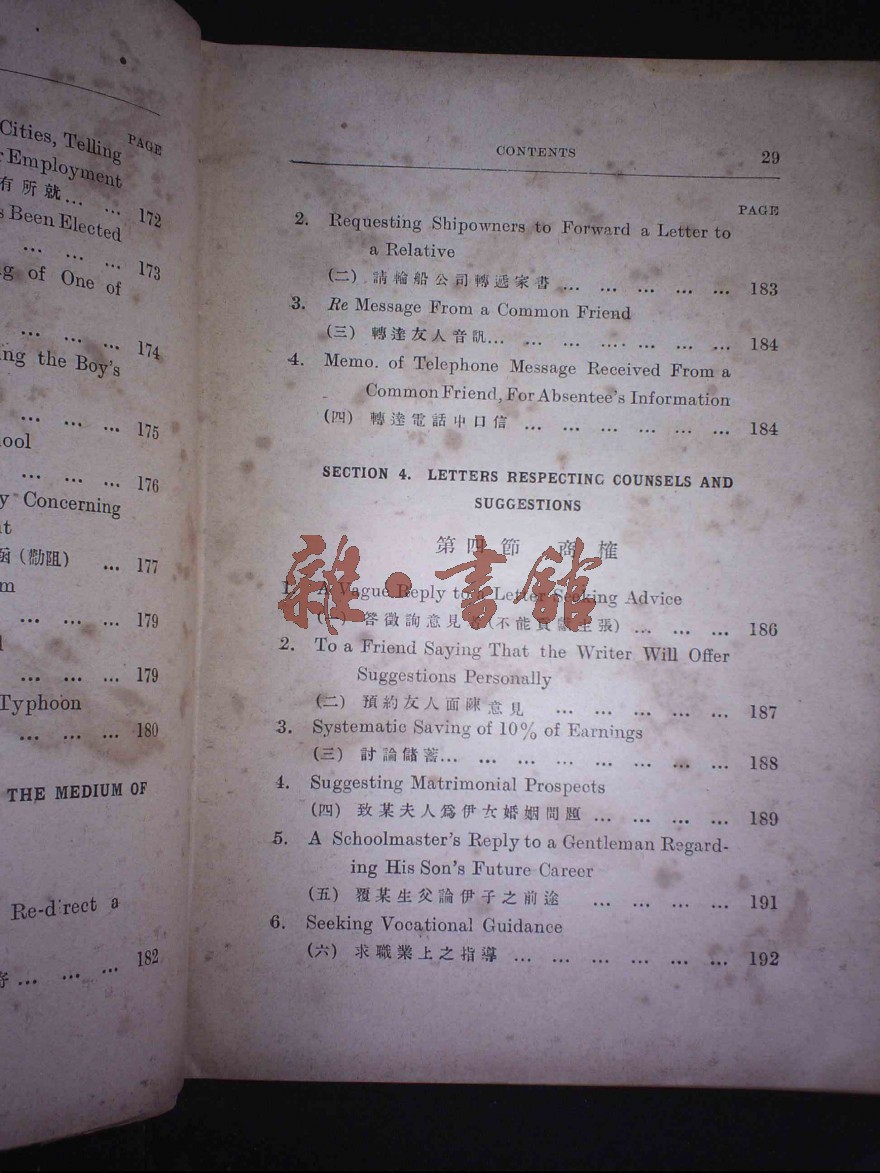 PAGE
Cities, Telling
Employment
有所就... ... 172
Been Elected
... ... ... 173
of One of
... ... ... 174
the Boy's
... ... ... 175
... ... ... 176
Concerning
(勸阻) ... 177
... ... ... 179
... ... ... 179
Typhoon
... ... ... 180
THE MEDIUM OF
Re-direct a
... ... ... 182
CONTENTS 29
PAGE
2. Requesting Shipowners to Forward a Letter to
a Relative
(二) 請輪船公司轉遞家書 ... ... ... ... ... 183
3. Re Message From a Common Friend
(三) 轉達友人音訊... ... ... ... ... ... ... 184
4. Memo. of Telephone Message Received From a
Common Friend, For Absentee's Information
(四) 轉達電話中口信 ... ... ... ... ... ... 184
SECTION 4. LETTERS RESPECTING COUNSELS AND
SUGGESTIONS
第四節 商榷
1. A Vague Reply to a Letter Seeking Advice
(一) 答徵詢意見者(不能貢獻主張) ... ... ... 186
2. To a Friend Saying That the Writer Will Offer
Suggestions Personally
(二) 預約友人面陳意見 ... ... ... ... ... 187
3. Systematic Saving of 10% of Earnings
(三) 討論儲蓄... ... ... ... ... ... ... ... 188
4. Suggesting Matrimonial Prospects
(四) 致某夫人爲伊女婚姻問題 ... ... ... ... 189
5. A Schoolmaster's Reply to a Gentleman Regard-
ing His Son's Future Career
(五) 覆某生父論伊子之前途 ... ... ... ... 191
6. Seeking Vocational Guidance
(六) 求職業上之指導 ... ... ... ... ... ... 192
雜·書館